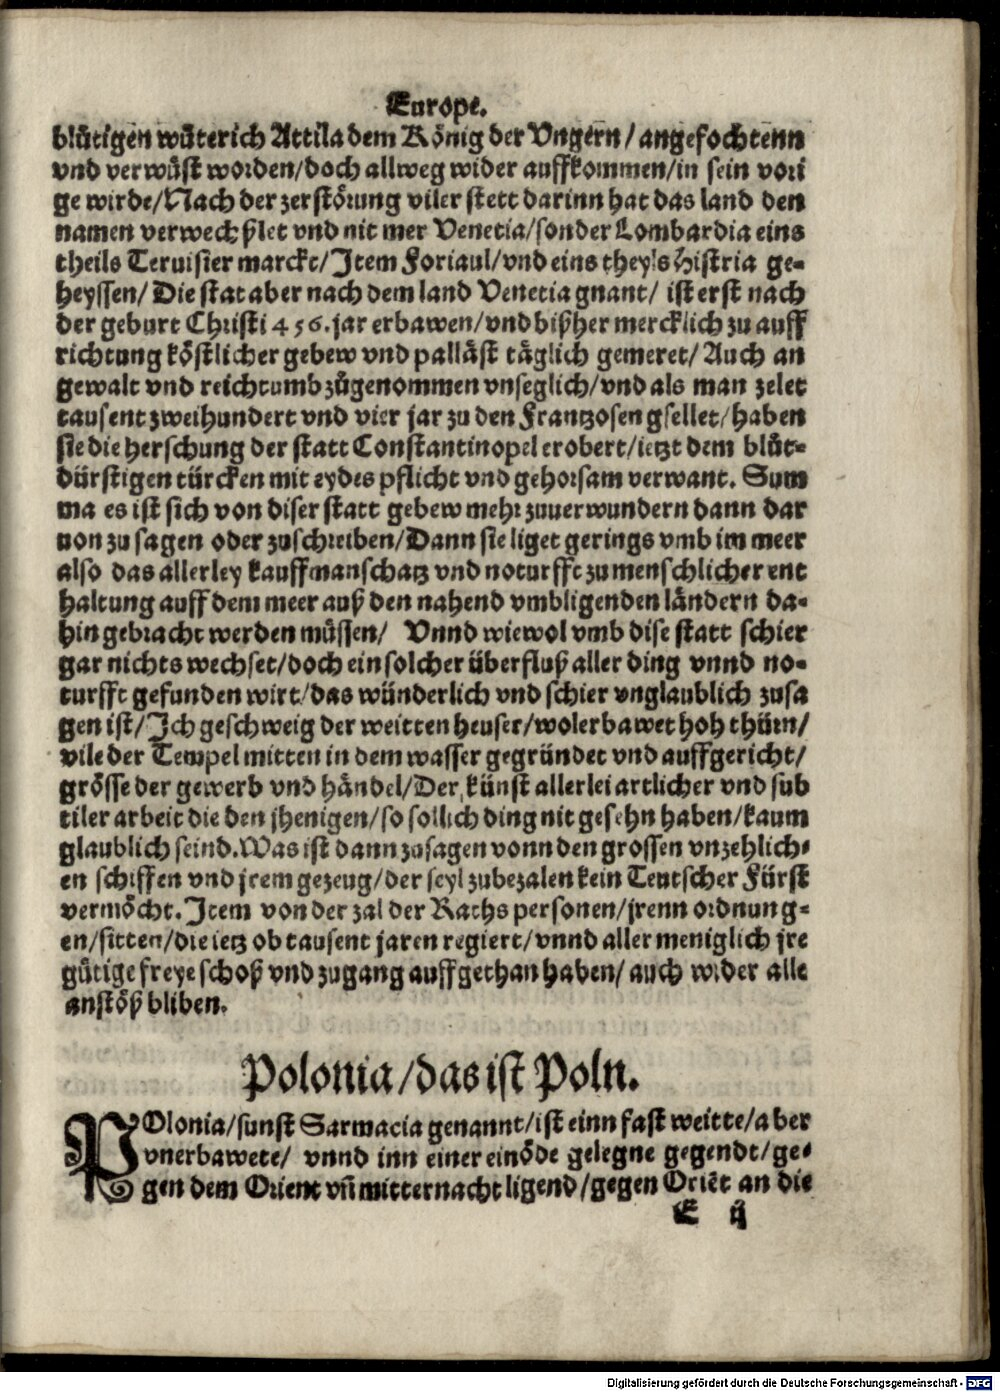 Europe.
blůtigen wůterich Attila dem König der Vngern / angefochtenn
vnd verwůst worden/doch allweg wider auffkommen/in sein vori
ge wirde/Nach der zerstörung viler stett darinn hat das land den
namen verwechßlet vnd nit mer Venetia/sonder Lombardia eins
theils Teruisier marckt/Item Foriaul/vnd eins theyls Histria ge-
heyssen/ Die stat aber nach dem land Venetia gnant/ ist erst nach
der geburt Christi 456. jar erbawen/vnd bißher mercklich zu auff
richtung köstlicher gebew vnd palläst täglich gemeret/ Auch an
gewalt vnd reichtumb zůgenommen vnseglich/vnd als man zelet
tausent zweihundert vnd vier jar zu den Frantzosen gsellet/haben
sie die herschung der statt Constantinopel erobert/ietzt dem blůt-
dürstigen türcken mit eydes pflicht vnd gehorsam verwant. Sum
ma es ist sich von diser statt gebew mehr zuuerwundern dann dar
uon zu sagen oder zuschreiben/Dann sie liget gerings vmb im meer
also das allerley kauffmanschatz vnd noturfft zu menschlicher ent
haltung auff dem meer auß den nahend vmbligenden ländern da-
hin gebracht werden müssen/ Vnnd wiewol vmb dise statt schier
gar nichts wechset/doch ein solcher überfluß aller ding vnnd no-
turfft gefunden wirt/das wünderlich vnd schier vnglaublich zusa
gen ist/Ich geschweig der weitten heuser/wolerbawet hoh thürn/
vile der Tempel mitten in dem wasser gegründet vnd auffgericht/
grösse der gewerb vnd händel/Der künst allerlei artlicher vnd sub
tiler arbeit die den jhenigen/so sollich ding nit gesehn haben/kaum
glaublich seind. Was ist dann zusagen vonn den grossen vnzehlich-
en schiffen vnd jrem gezeug/der seyl zubezalen kein Teutscher Fürst
vermöcht. Item von der zal der Raths personen/jrenn ordnung-
en/sitten/die ietz ob tausent jaren regiert/vnnd aller meniglich jre
gütige freye schoß vnd zugang auffgethan haben/ auch wider alle
anstöß bliben.
Polonia/das ist Poln.
POlonia/sunst Sarmacia genannt/ist einn fast weitte/aber
vnerbawete/ vnnd inn einer einöde gelegne gegendt/ge-
gen dem Orient vñ mitternacht ligend/gegen Oriẽt an die
E ij
Digitalisierung gefördert durch die Deutsche Forschungsgemeinschaft - DFG